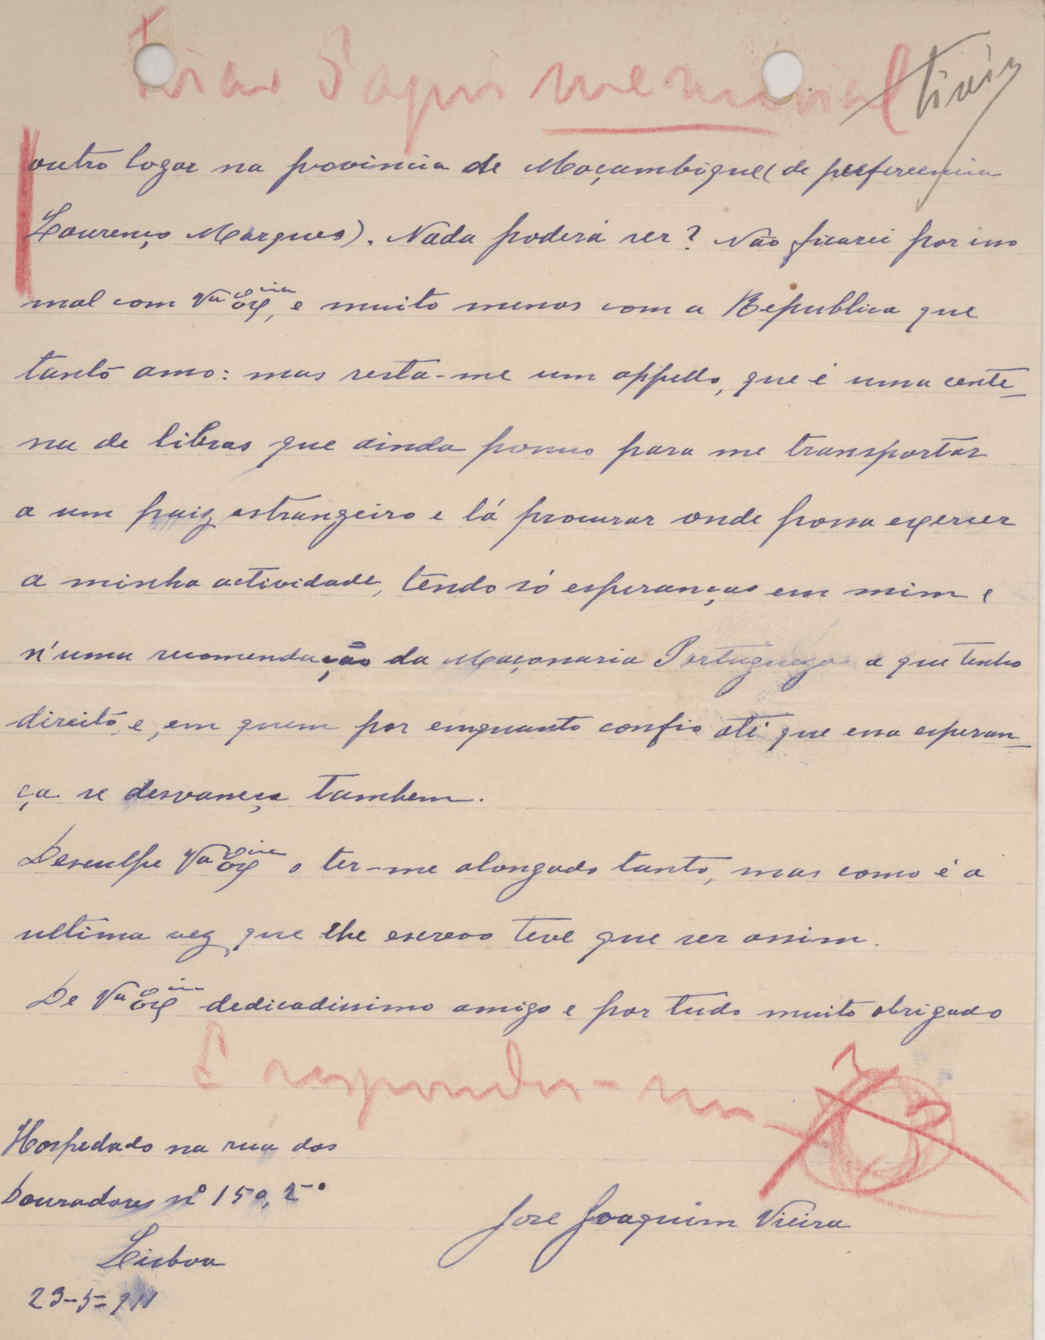 outro logar na provincia de Moçambique (de prefereencia
Lourenço Marques). Nada poderá ser? Não ficarei por isso
mal com Vª Exª, e muito menos com a Republica que
tanto amo: mas resta-me um appello, que é uma cente-
na de libras que ainda possuo para me transportar
a um paiz estrangeiro e lá procurar onde possa exercer
a minha actividade, tendo só esperanças em mim e
n'uma recomendação da Maçonaria Portugueza a que tenho
direito e, em quem por emquanto confio até que essa esperan-
ça se desvaneça tambem.
Desculpe Vª Exª o ter-me alongado tanto, mas como é a
ultima vez que lhe escrevo teve que ser assim.
De Vª Exª dedicadissimo amigo e por tudo muito obrigado
Hospedado na rua dos
Douradores nº 150, 2º
José Joaquim Vieira
Lisboa
23-5-911